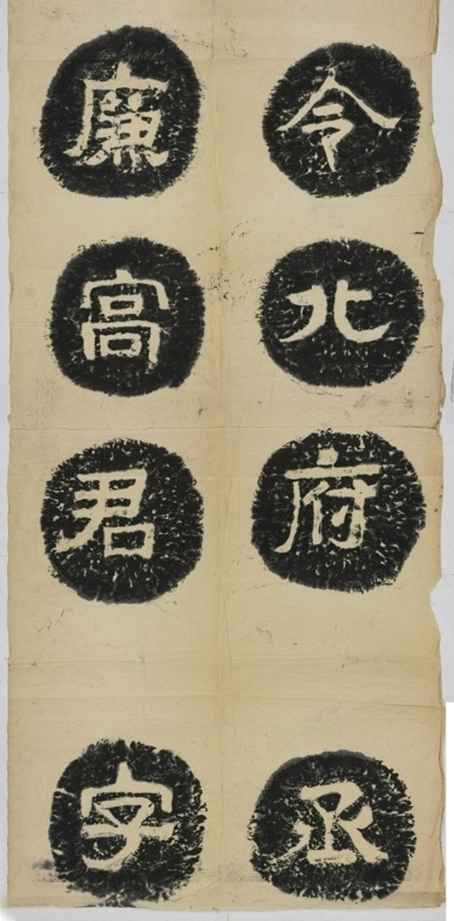 令北府丞
廉高君字